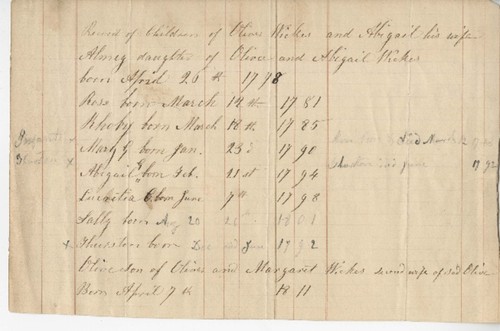 Record of Children of Oliver Wickes and Abigail his wife
Almey daughter of Oliver and Abigail Wickes
born April 26th 1778
Rose born March 14th 1781
Rhoby born March 18th 1785
Mary G born Jan. 23d 1790
Abigail E born Feb. 21st 1794
Lucretia C born June 7th 1798
Sally born Aug 20 1801
x Thurston born June 1792
Oliver son of Oliver and Margaret Wickes second wife of sd Oliver
Born April 7th 1811
died March
Thurston died June 1792